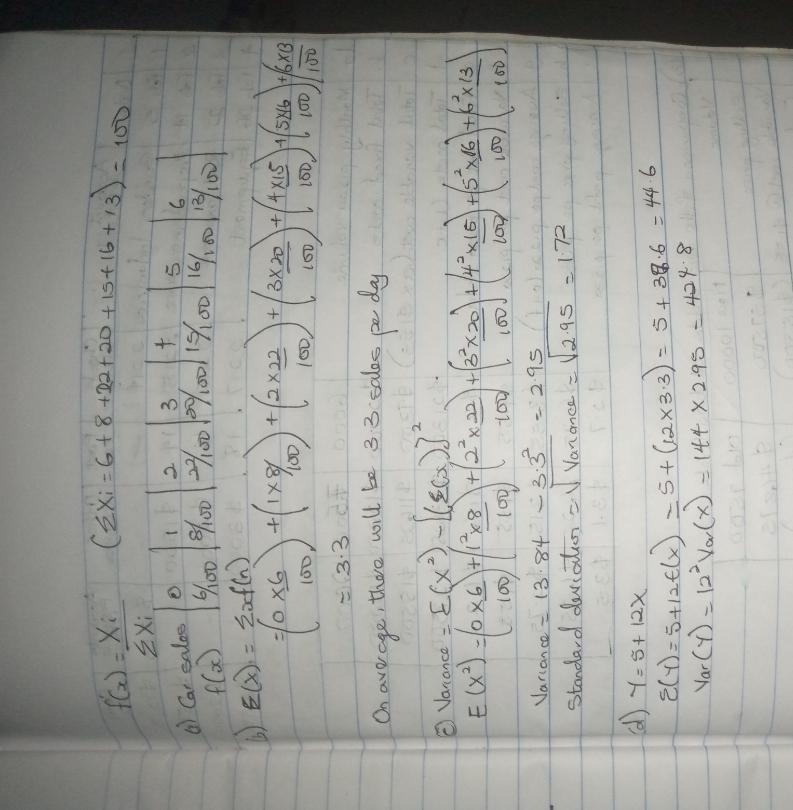 f(x) = Xi (ΣXi = 6+8+22+20+15+16+13) = 100
ΣXi
a) Car sales | 0 | 1 | 2 | 3 | 4 | 5 | 6 |
f(x) | 6/100 | 8/100 | 22/100 | 20/100 | 15/100 | 16/100 | 13/100 |
b) E(X) = Σxf(x)
= (0×6/100) + (1×8/100) + (2×22/100) + (3×20/100) + (4×15/100) + (5×16/100) + (6×13/100)
= 3.3
On average, there will be 3.3 sales per day
c) Variance = E(X²) - [(E(X)]²
E(X²) = (0×6/100) + (1²×8/100) + (2²×22/100) + (3²×20/100) + (4²×15/100) + (5²×16/100) + (6²×13/100)
Variance = 13.84 - 3.3² = 2.95
Standard deviation = √Variance = √2.95 = 1.72
(d) Y = 5+12X
E(Y) = 5+12E(X) = 5+(12×3.3) = 5+39.6 = 44.6
Var(Y) = 12² Var(X) = 144 × 2.95 = 424.8